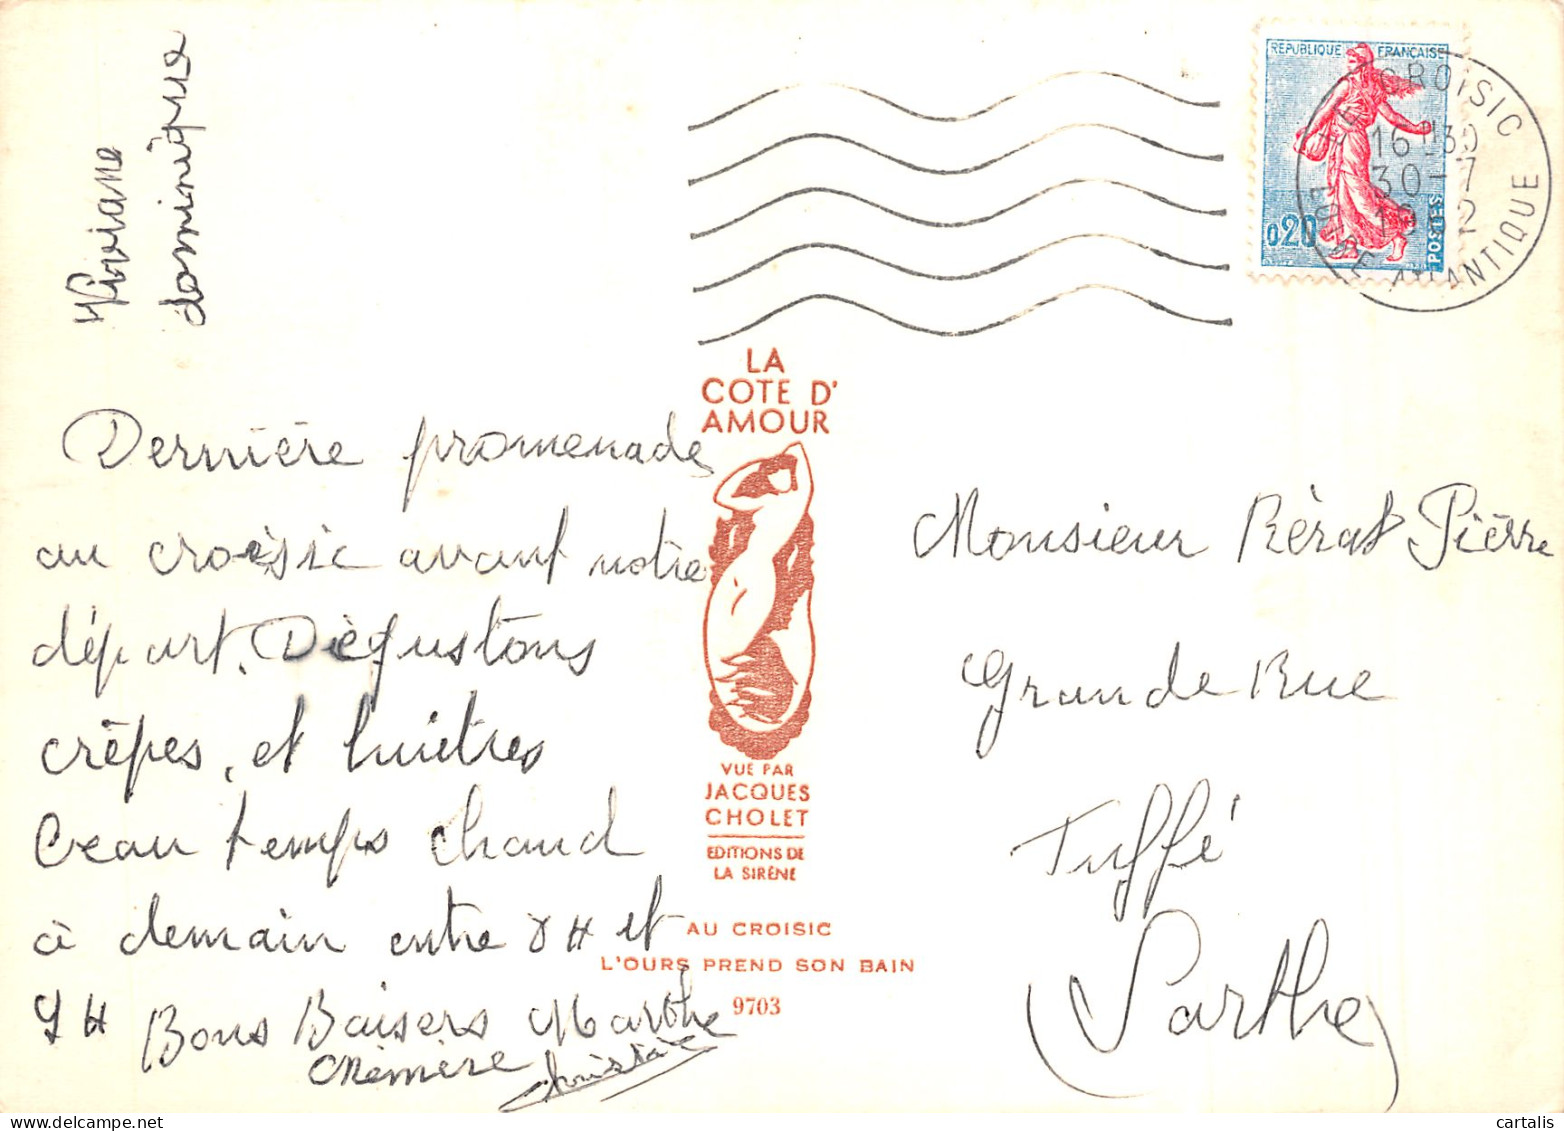 Viviane
dominique
REPUBLIQUE FRANCAISE
0,20
POSTES
LE CROISIC
16 H30
30-7
LOIRE ATLANTIQUE
LA
COTE D'
AMOUR
VUE PAR
JACQUES
CHOLET
EDITIONS DE
LA SIRÈNE
AU CROISIC
L'OURS PREND SON BAIN
9703
Dernière promenade
au croisic avant notre
départ. Dégustons
crêpes, et huitres
Beau temps chaud
à demain entre 8 H et
9 H Bons Baisers Marthe
Mémère Christian
Monsieur Bérat Pierre
Grande Rue
Tuffé
Sarthe
cartalis